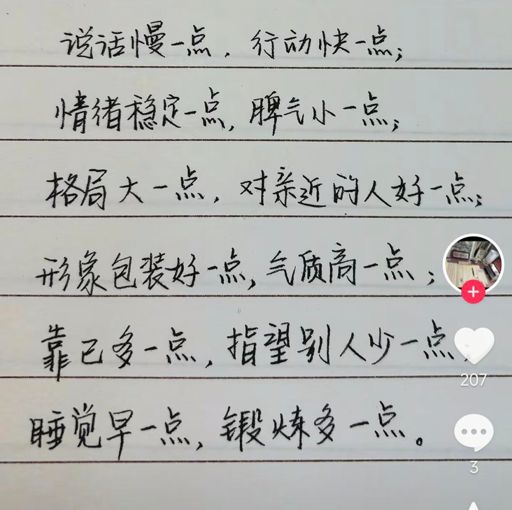 说话慢一点，行动快一点；
情绪稳定一点，脾气小一点；
格局大一点，对亲近的人好一点；
形象包装好一点，气质高一点；
靠己多一点，指望别人少一点，
睡觉早一点，锻炼多一点。
207
3